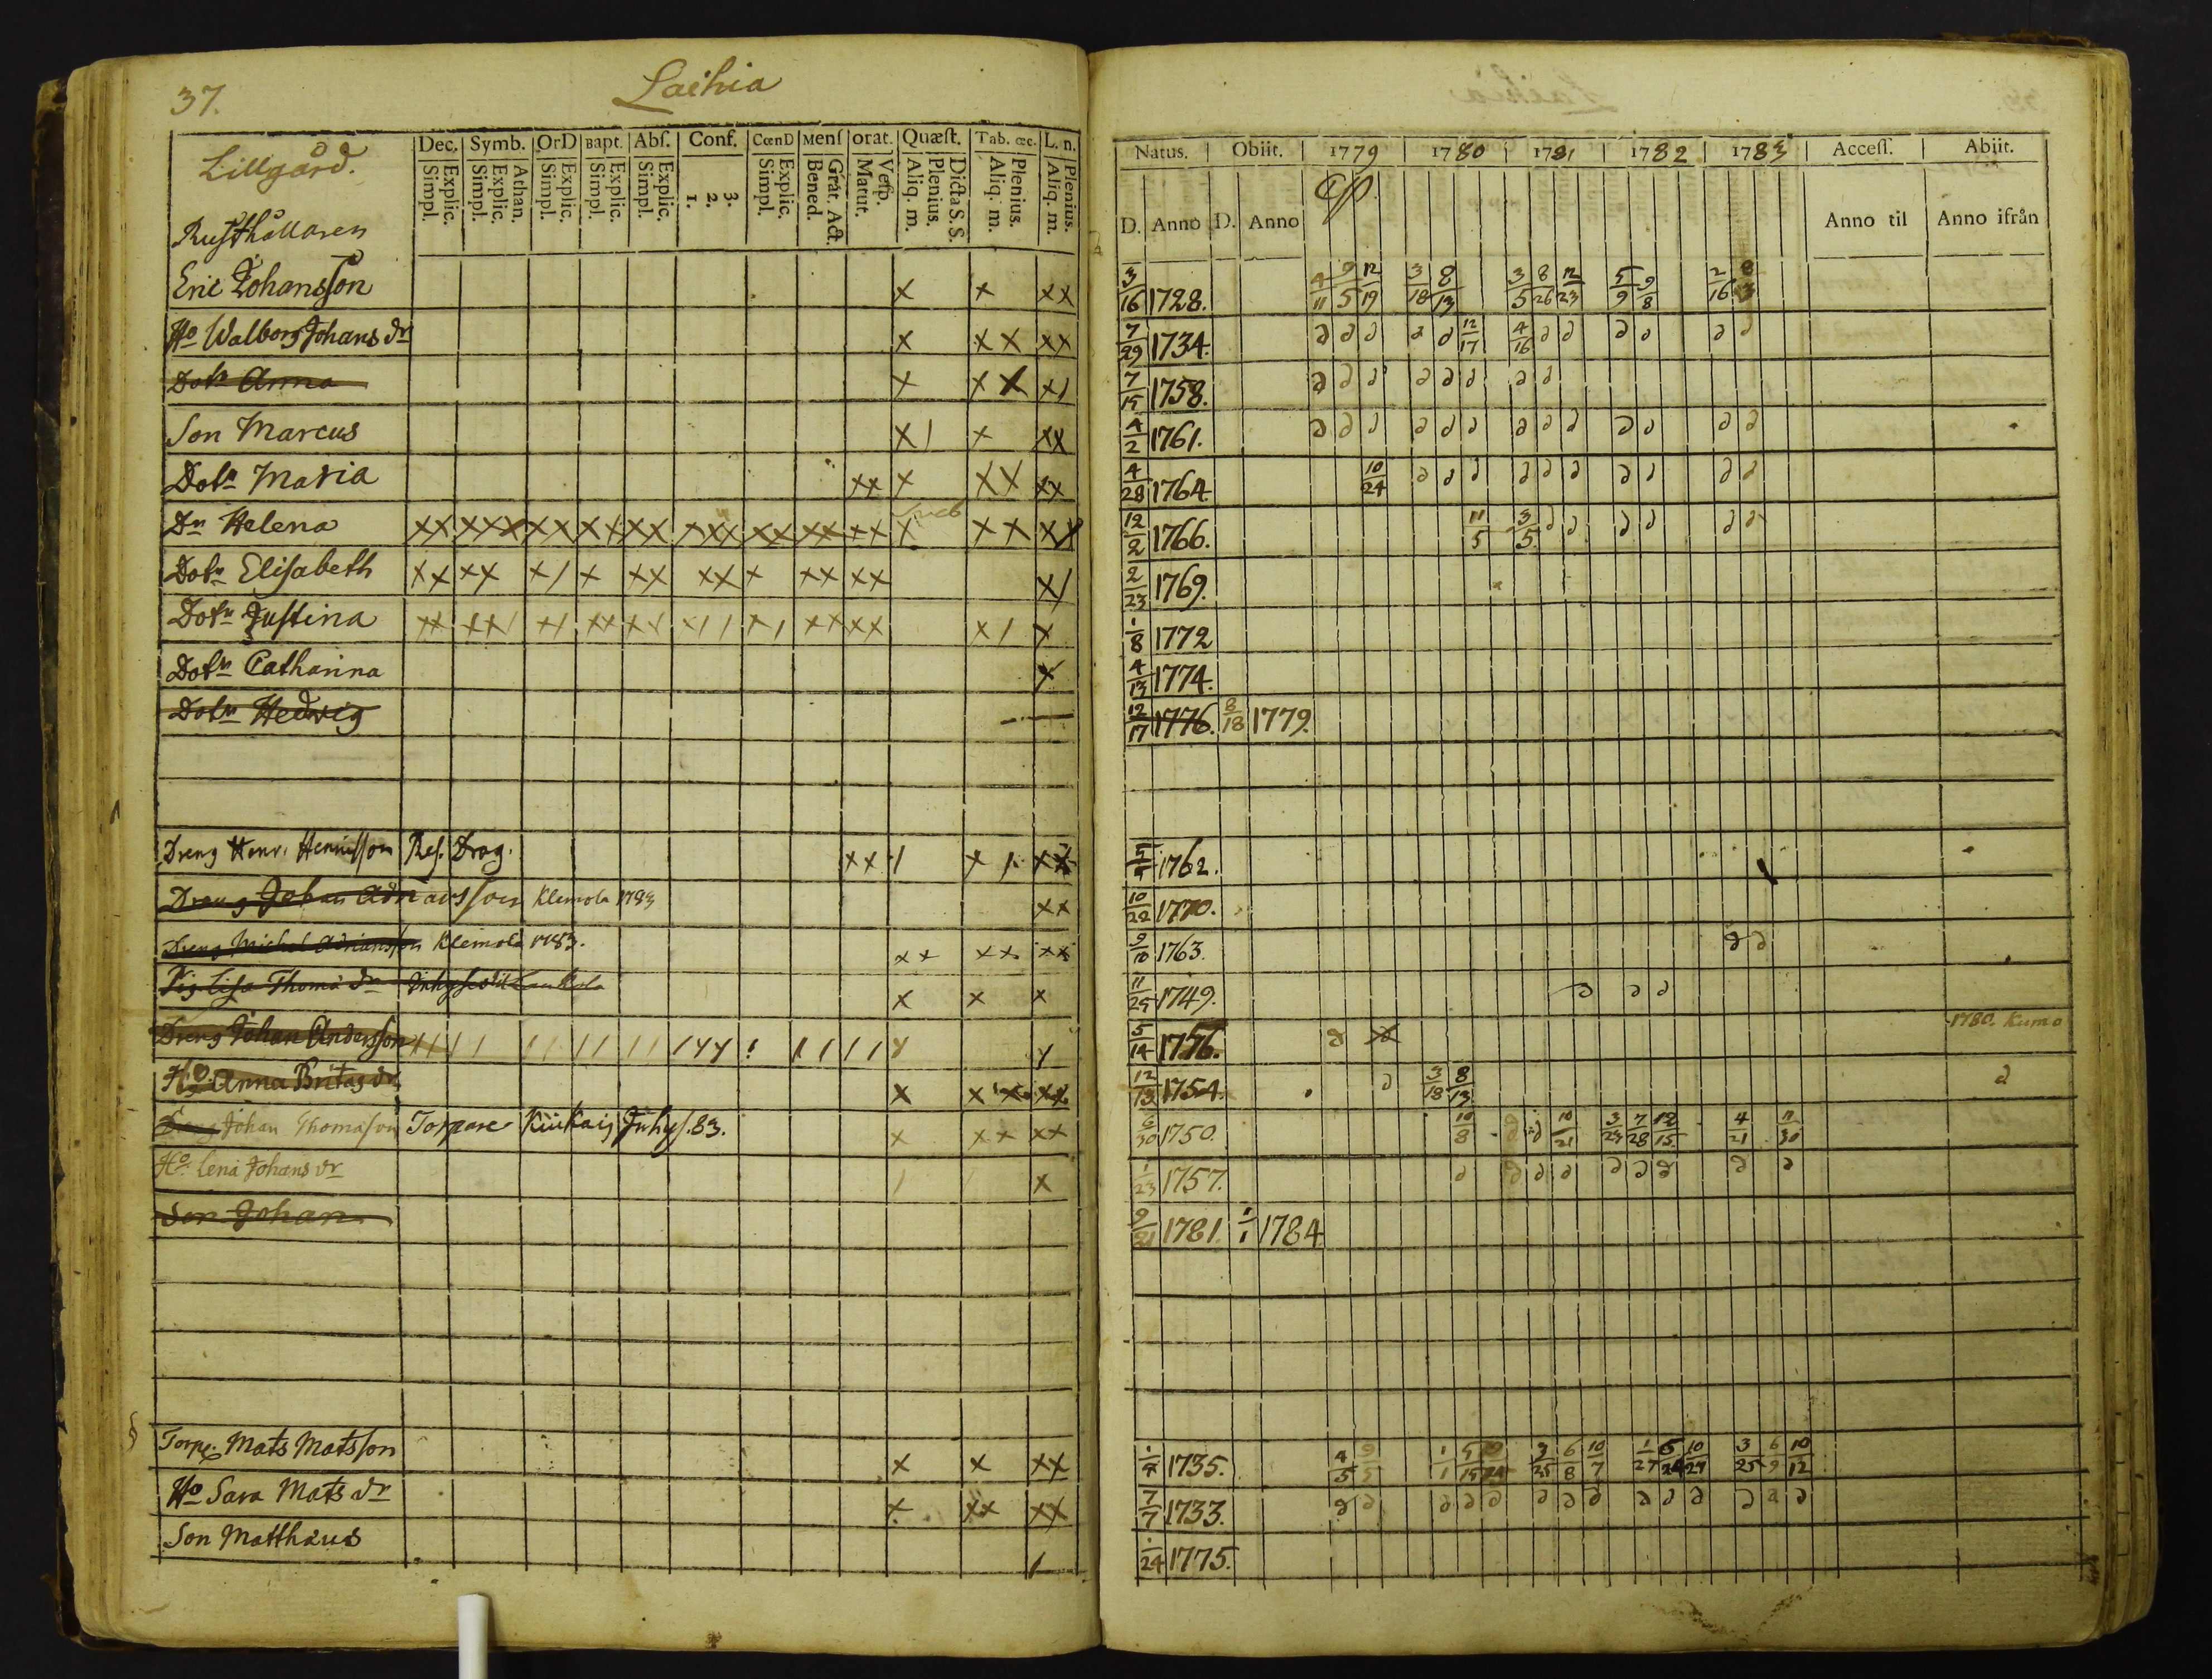 37.
Laihia
Lillgård.
Dec. Symb. OrD Bapt. Abſ. Conf. CœnD Menſ orat. Quæſt. Tab. œc. L. n.
Explic. Simpl. Athan. Explic. Simpl. Explic. Simpl. Explic. Simpl. Explic. Simpl. 3. 2. 1. Explic. Simpl. Grat. Act. Bened. Veſp. Matut. Dicta S. S. Plenius. Aliq. m. Plenius. Aliq. m. Plenius. Aliq. m.
Natus. Obiit. 1779 1780 1781 1782 1783 Acceſſ. Abiit.
D. Anno D. Anno Anno til Anno ifrån
Rusthållaren
Eric Johansson x x xx 3/16 1728. 4/11 9/5 12/19 3/18 8/13 3/5 8/26 12/23 5/9 9/8 2/16
Ho Walborg Johans dr x xx xx 7/29 1734. d d d d d 12/17 4/16 d d d d d d
Dotr Anna x xx x/ 7/15 1758. d d d d d d d d
Son Marcus x/ x xx 4/2 1761. d d d d d d d d d d d d d
Dotr Maria xx x xx xx 4/28 1764 10/24 d d d d d d d d d d
Dr Helena xx xxx xx xx xx xxx xx xx xx x xx xx 12/2 1766. 11/5 3/5 d d d d d d
Dotr Elisabeth xx xx x/ x xx xx x xx xx x/ 2/23 1769.
Dotr Justina xx xx/ x/ xx xx x// x/ xx xx x/ x 1/8 1772
Dotr Catharina x 4/13 1774.
Dotr Hedwig 12/17 1776. 8/18 1779.
Dreng Henr. Henrisson Res. Drag. xx / x / xx 1762.
Dreng Johan Adriansson Klemola 1783 xx 10/22 1770.
Dreng Michel Adriansson Klemola 1783. xx xx xx 9/10 1763. d d
Pig. Lisa Thoma dr x x x 11/25 1749. d d d
Dreng Johan Andersson 5/14 1756. d 1780. Kumo
Ho Anna Britas dr x xx xx 12/13 1754. d 3/18 8/13 d
Dreng Johan Thomasson Torpare Kiikaij Inhys. 83. x xx xx 6/30 1750. 10/8 10/21 3/23 7/28 12/15 4/21 11/30
Ho. Lena Johans dr / / x 1/23 1757. d d d d d d d d d
Son Johan 9/21 1781. 1/1 1784
Torp. Mats Matsson x x xx 1735. 4/5 9/5 1/1 6/8 10/7 3/25 6/9 10/12
Ho Sara Mats dr x xx xx 7/7 1733. d d d d d d d d d d d d d d
Son Matthæus / 1/24 1775.